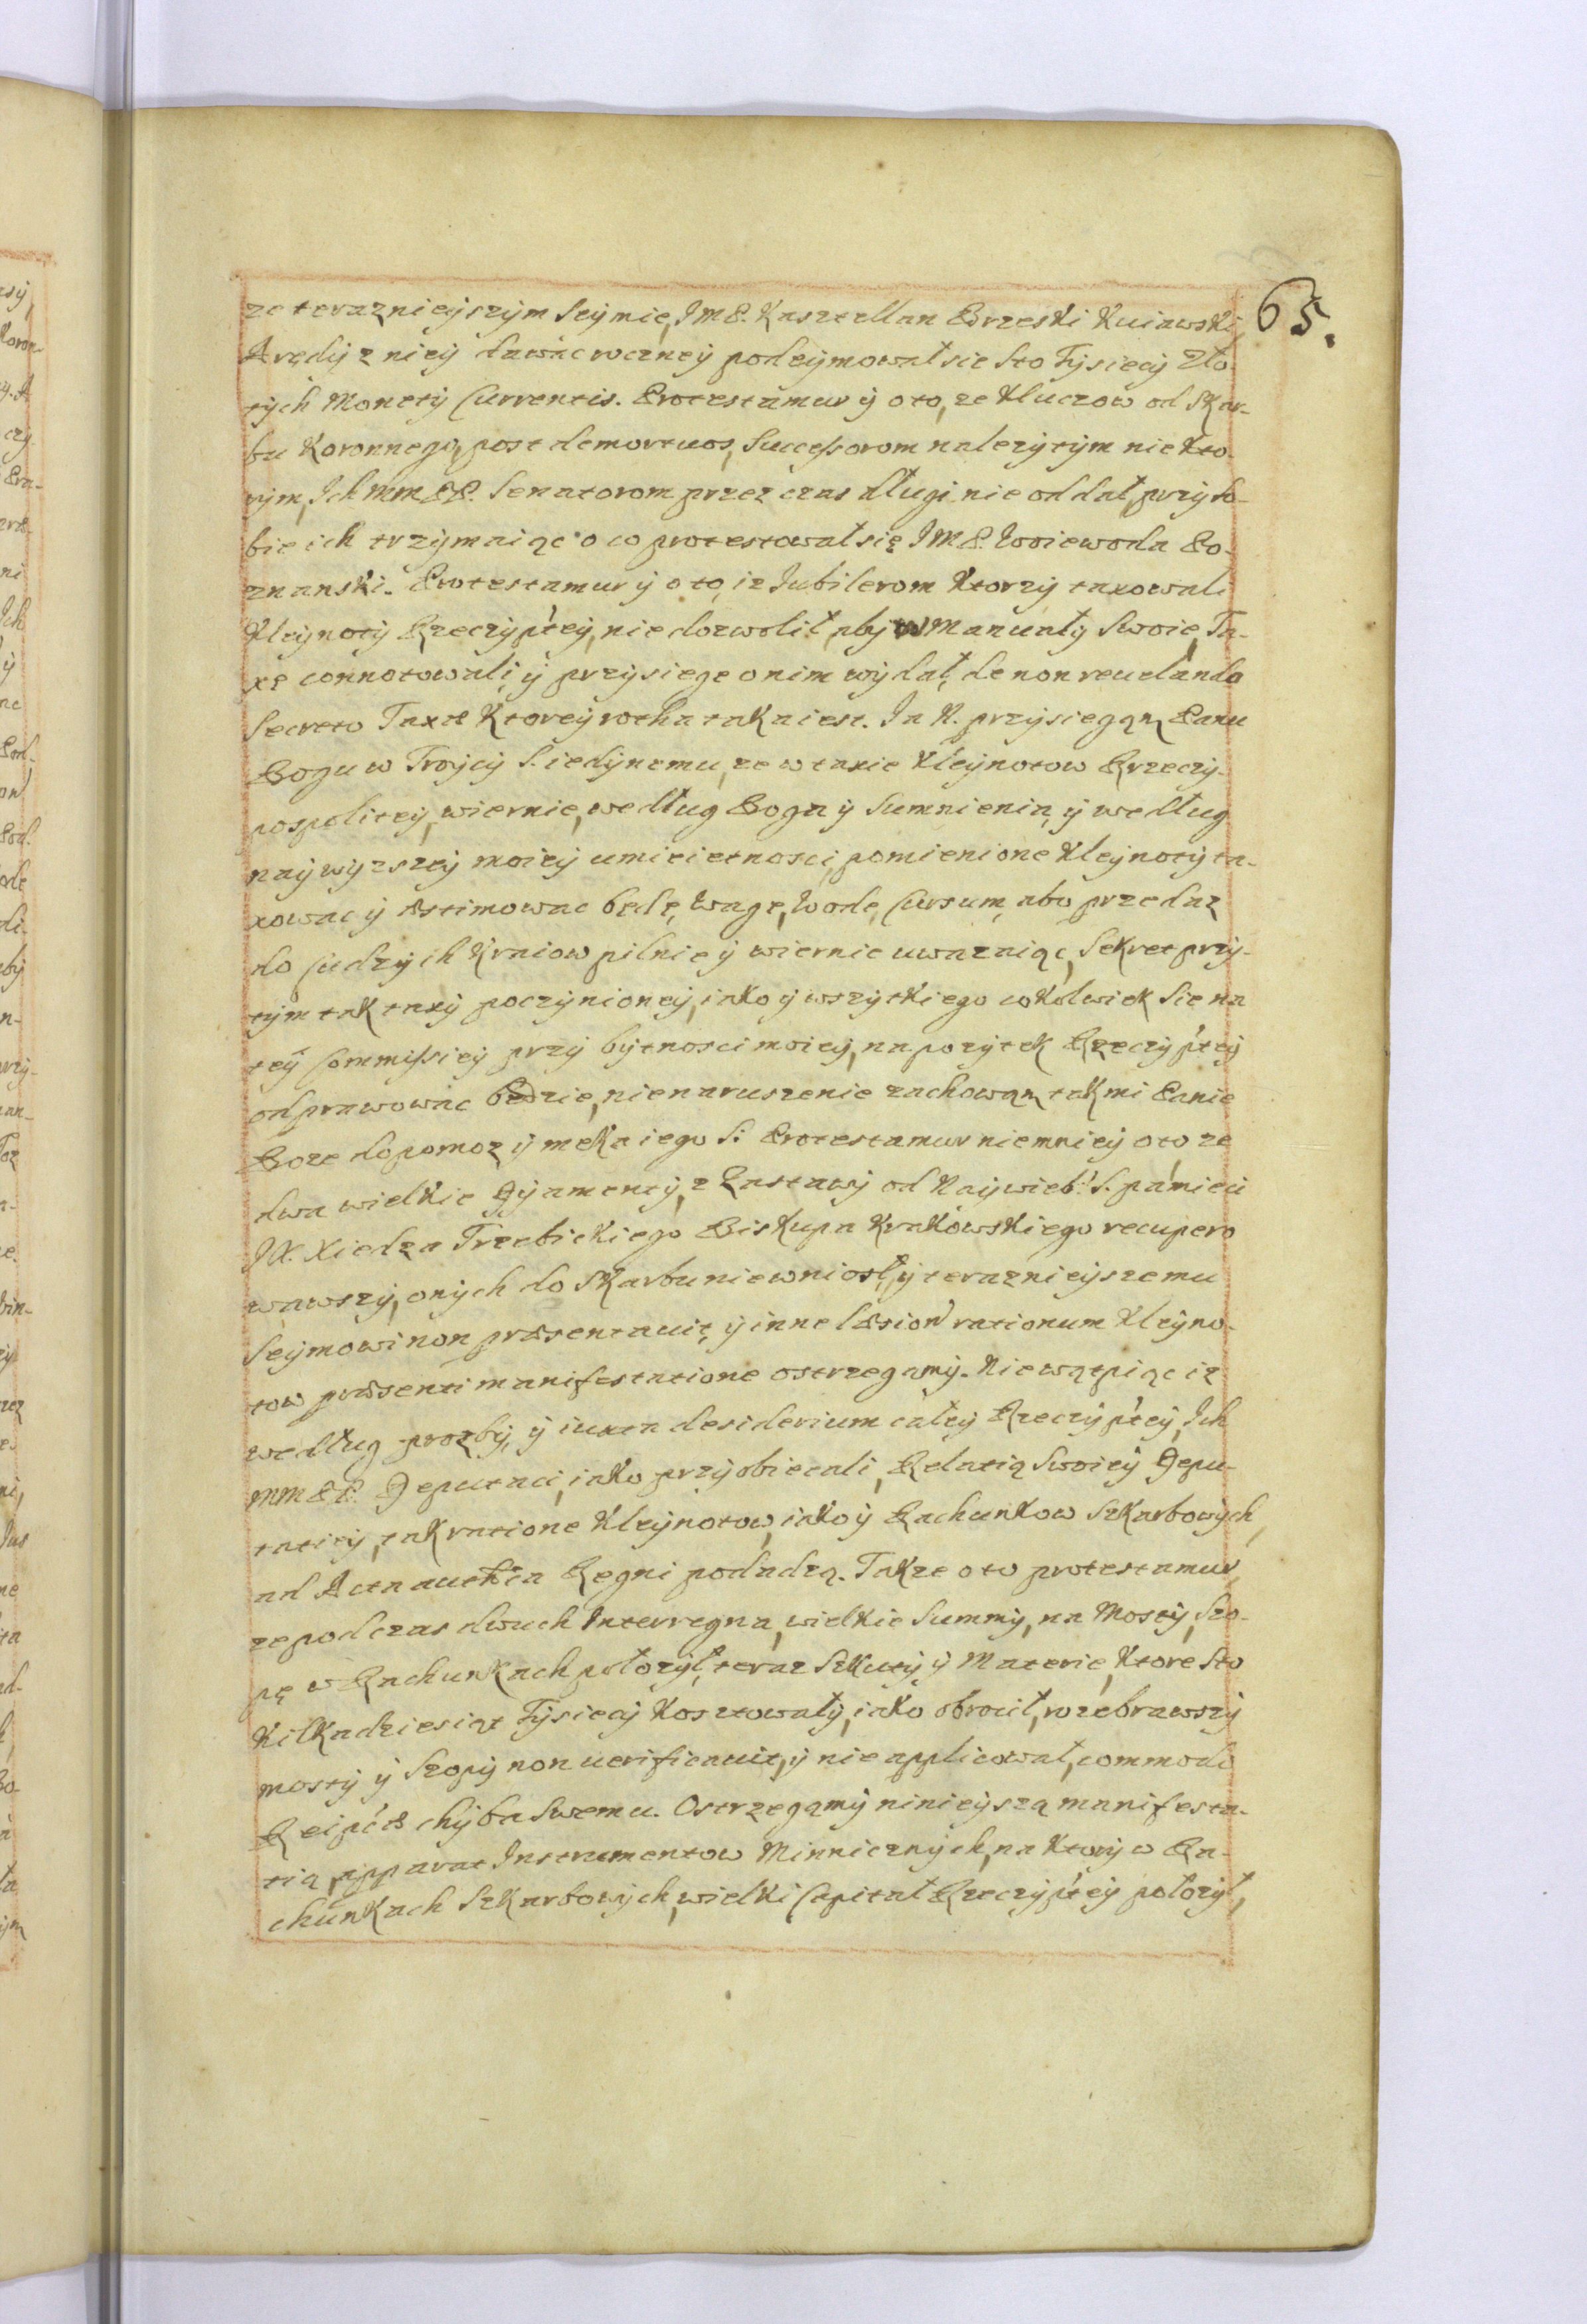 65.
ze terazznieyszÿm Seÿmie, JMP. Kasztellan Brzeski Kuiawski,
Arędÿ z nieÿ dawác roczneÿ podeÿmował sie Sto Tÿsiecÿ Zło-
tÿch Monetÿ Currentis. Protestamur ÿ oto, ze Kluczow od Skar-
bu Koronnego, post demortuos, Successorom nalezÿtÿm niekto-
rÿm, Ich MM PP. Senatorom przez czas długi nie oddał, przÿ So-
bie ich trzÿmaiąc o co protestował się JMP. Woiewoda Po-
znanski. Protestamur ÿ oto, iz Iubilerom Ktorzÿ taxowali
Kleÿnotÿ Rzeczÿpťeÿ, nie dozwolił, abÿ w Manuałÿ Swoie, Ta-
xę connotowali, ÿ przÿsiege onim wÿdał, de non reuelando
Secreto Taxæ Ktoreÿ rotha taka iest. Ia N. przÿsiegąm Panu
Bogu w Troÿcÿ S. iedÿnemu, ze w taxie Kleÿnotow Rzeczÿ-
pospoliteÿ, wiernie, według Boga ÿ Sumnienia, ÿ według
naÿwÿzszeÿ moieÿ umieietnosci, pomienione Kleÿnotÿ ta-
xowac ÿ æstimowac będę, Wagę, Wodę, Cursum, abo przedaz
do Cudzÿch Kraiow pilnie ÿ wiernie uwazaiąc, Sekret przÿ-
tÿm tak taxÿ poczÿnioneÿ, iako ÿ wszÿtkiego cokolwiek Sie na
teÿ Commissieÿ przÿ bÿtnosci moieÿ, na pozÿtek Rzeczÿpťeÿ
odprawowác będzie, nienaruszenie zachowąm tak mi Panie
Boze dopomoz ÿ meka iego S: Protestamur niemnieÿ oto ze
dwa wielkie Dÿamentÿ, z Zastawÿ od Naÿwieb: S. pámieci
JX. Xiedza Trzebickiego Biskupa Krakowskiego recupero
wawszÿ, onÿch do Skarbu niewniosł, ÿ terazznieÿszemu
Seÿmowi non præsentauit, ÿ inne læsion rationum Kleÿno-
tow præsenti manifestatione ostrzegamÿ. Niewątpiąc iz
według prozbÿ, ÿ iuxta desiderium całeÿ Rzeczÿpťeÿ, Ich
MM PP. Deputaci, iako przÿobiecali, Relatią Swoieÿ Depu-
tatieÿ, tak ratione Kleÿnotow, iako ÿ Rachunkow Szkarbowÿch,
ad Acta authia Regni podadzą. Takze oto protestamur,
ze podczas dwuch Interregna, wielkie Summÿ, na Mostÿ, Szo-
pę w Rachunkach połozÿł, teraz Szkutÿ ÿ Materie, Ktore Sto
Kilkadziesiąt Tÿsiecÿ Kosztowałÿ, iako obrocił, rozebrawszÿ
mostÿ ÿ Szopÿ non uerificauit, ÿ nie applicował, commodo
Reipćæ chÿba Swemu. Ostrzegąmÿ ninieÿszą manifesta-
tią, apparat Instrumentow Minnicznÿch, na Ktorÿ w Ra-
chunkach Szkarbowÿch, wielki Capitał Rzeczÿpťeÿ połozÿł,